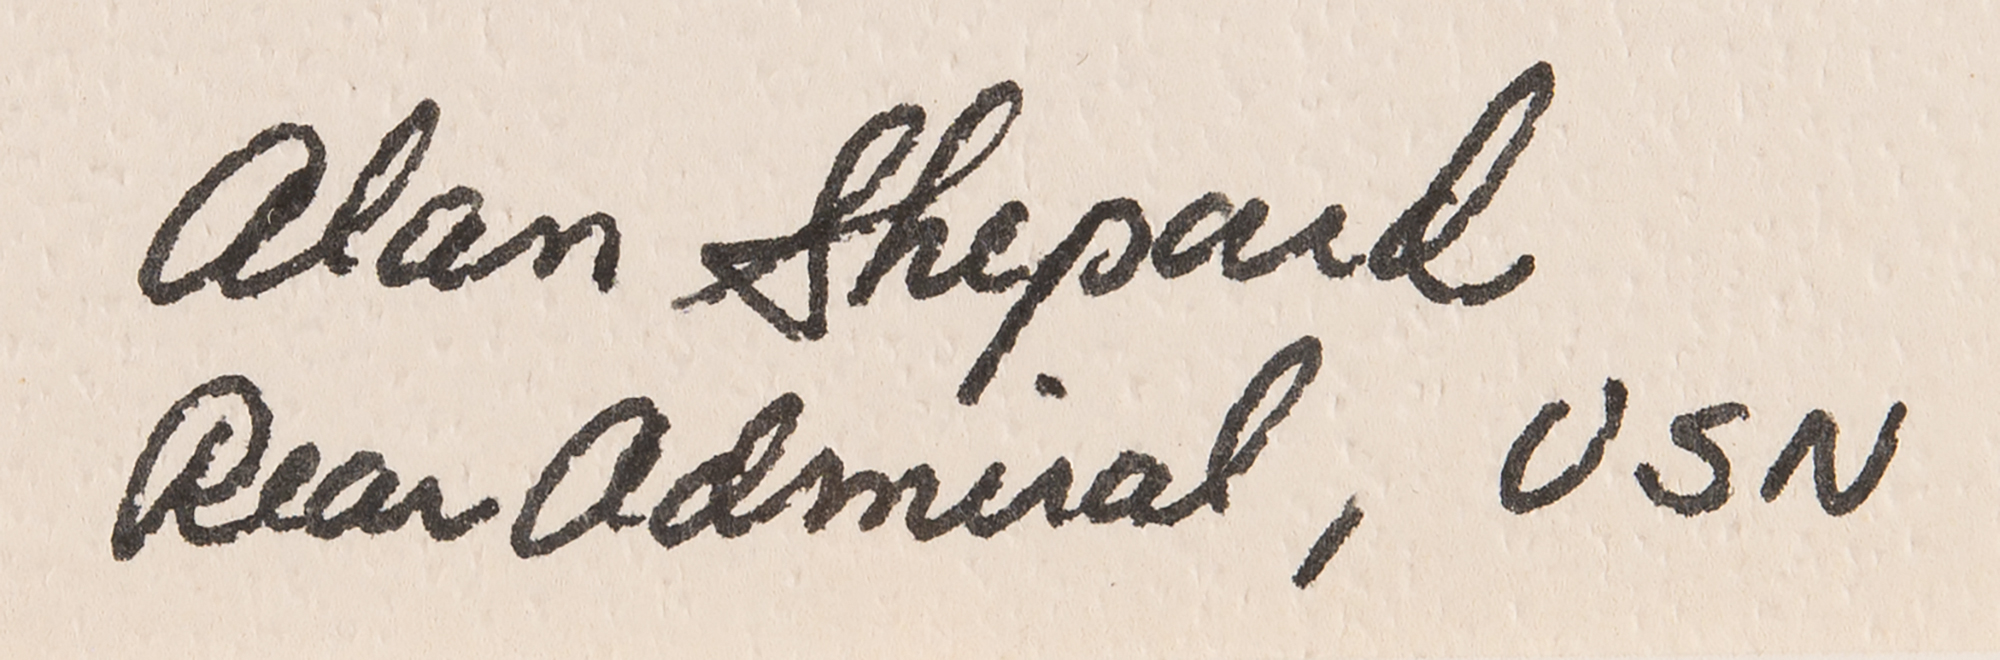 Alan Shepard
Rear Admiral, USN